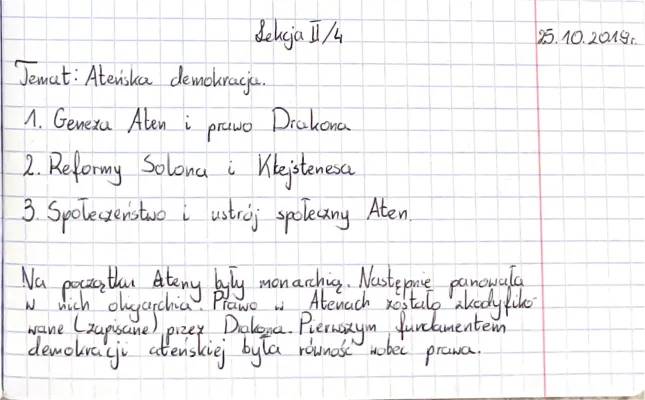 Lekcja II/4 25.10.2019r.
Temat: Ateńska demokracja.
1. Geneza Aten i prawo Drakona
2. Reformy Solona i Klejstenesa
3. Społeczeństwo i ustrój społeczny Aten.
Na początku Ateny były monarchią. Następnie panowała
w nich oligarchia. Prawo w Atenach zostało skodyfiko-
wane (zapisane) przez Drakona. Pierwszym fundamentem
demokracji ateńskiej była równość wobec prawa.